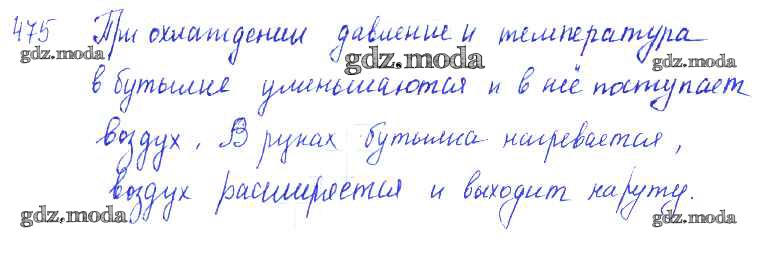 475 При охлаждении давление и температура
gdz.moda gdz.moda gdz.moda
в бутылке уменьшаются и в неё поступает
воздух. В руках бутылка нагревается,
воздух расширяется и выходит наружу.
gdz.moda gdz.moda